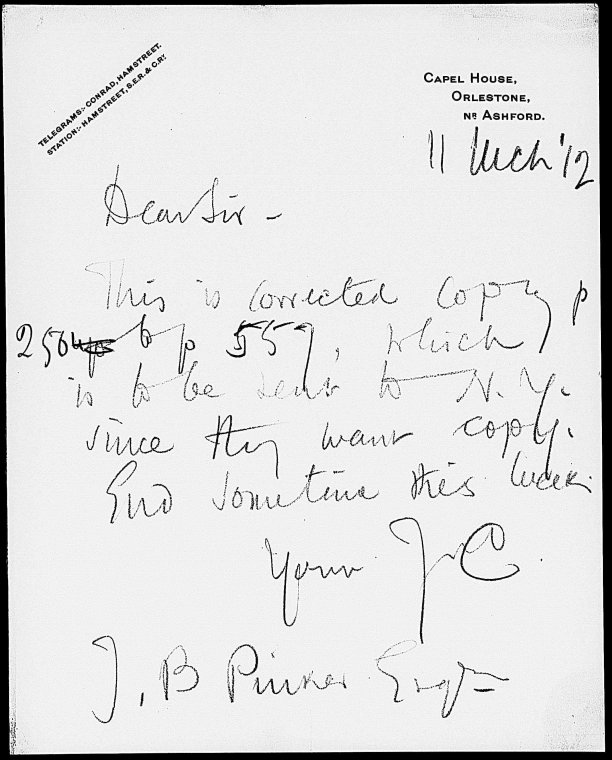 TELEGRAMS:- CONRAD, HAMSTREET.
STATION:- HAMSTREET, S.E.R. & C.RY.
CAPEL HOUSE,
ORLESTONE,
NR ASHFORD.
11 Mch '12
Dear Sir -
This is corrected copy p
250 to p 557, which
is to be sent to N.Y.
since they want copy.
End sometime this week.
Yours J C.
J. B Pinker Esqre